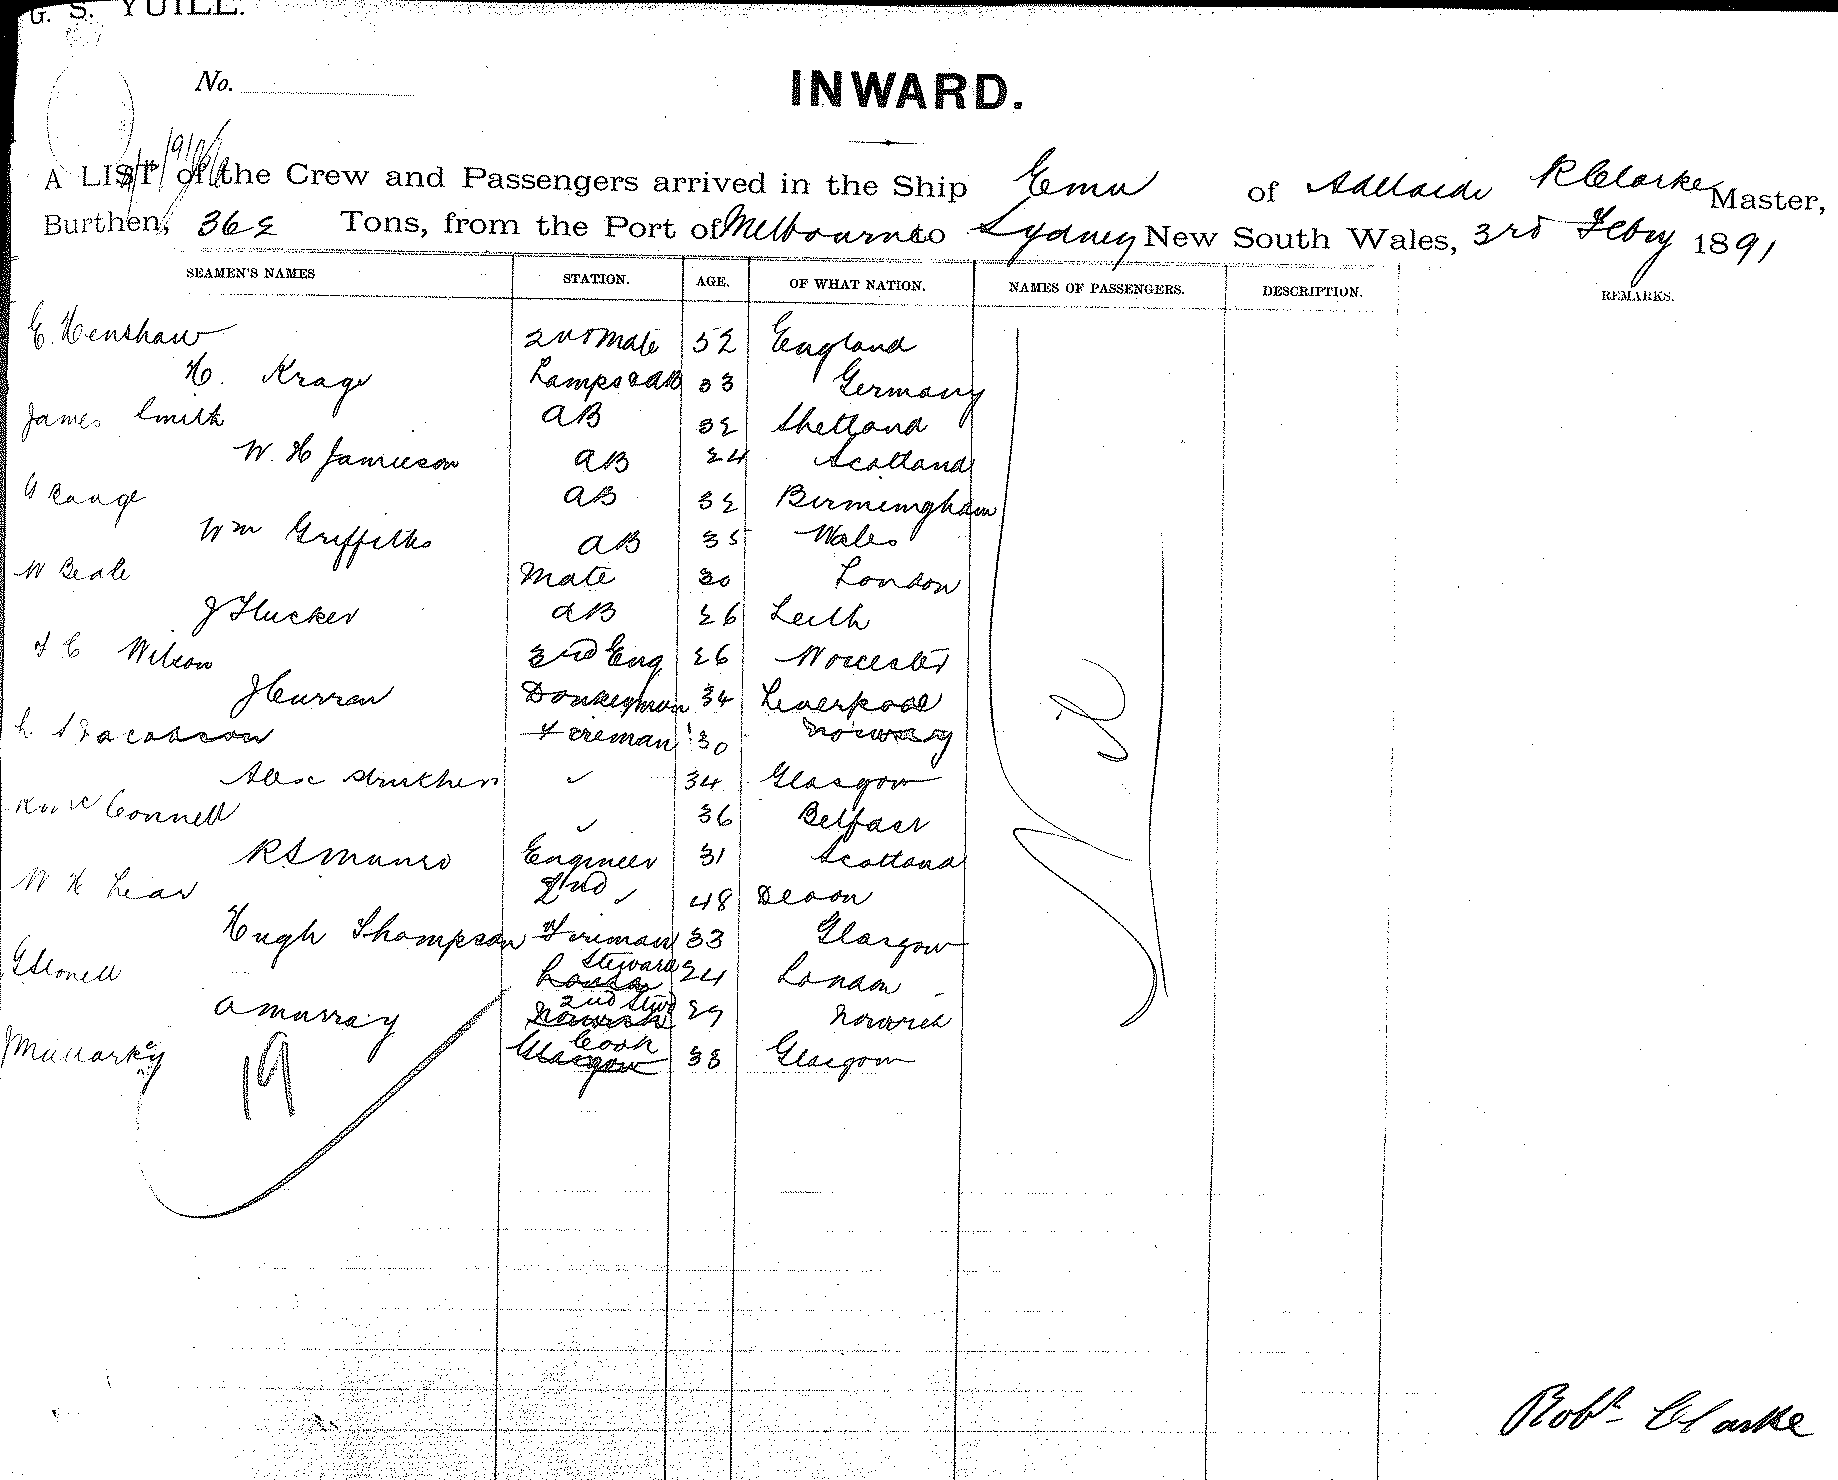 G. S. YUILL.
No.
INWARD.
A LIST of the Crew and Passengers arrived in the Ship Emu of Adelaide R Clarke Master,
Burthen, 362 Tons, from the Port of Melbourne to Sydney New South Wales, 3rd Febry 1891
SEAMEN'S NAMES STATION. AGE. OF WHAT NATION. NAMES OF PASSENGERS. DESCRIPTION. REMARKS.
E. Henshaw 2nd Mate 52 England
H. Krage Lamps & AB 33 Germany
James Smith AB 32 Shetland
W. H Jamieson AB 24 Scotland
AB 32 Birmingham
Wm Griffiths AB 35 Wales
W Beale Mate 30 London
J Flucker AB 26 Leith
Wilson 3rd Eng 26 Worcester
J Curran Donkeyman 34 Liverpool
Jacobson Fireman 30 Norway
Alex 34 Glasgow
Connell 36 Belfast
R S Munro Engineer 31 Scotland
W H Lear 2nd 48 Devon
Hugh Thompson Fireman 33 Glasgow
G Stonell Steward London 24 London
A Murray 2nd Stwd Norwich 29 Norwich
J Mullarkey Cook Glasgow 38 Glasgow
Nil
19
Robt Clarke